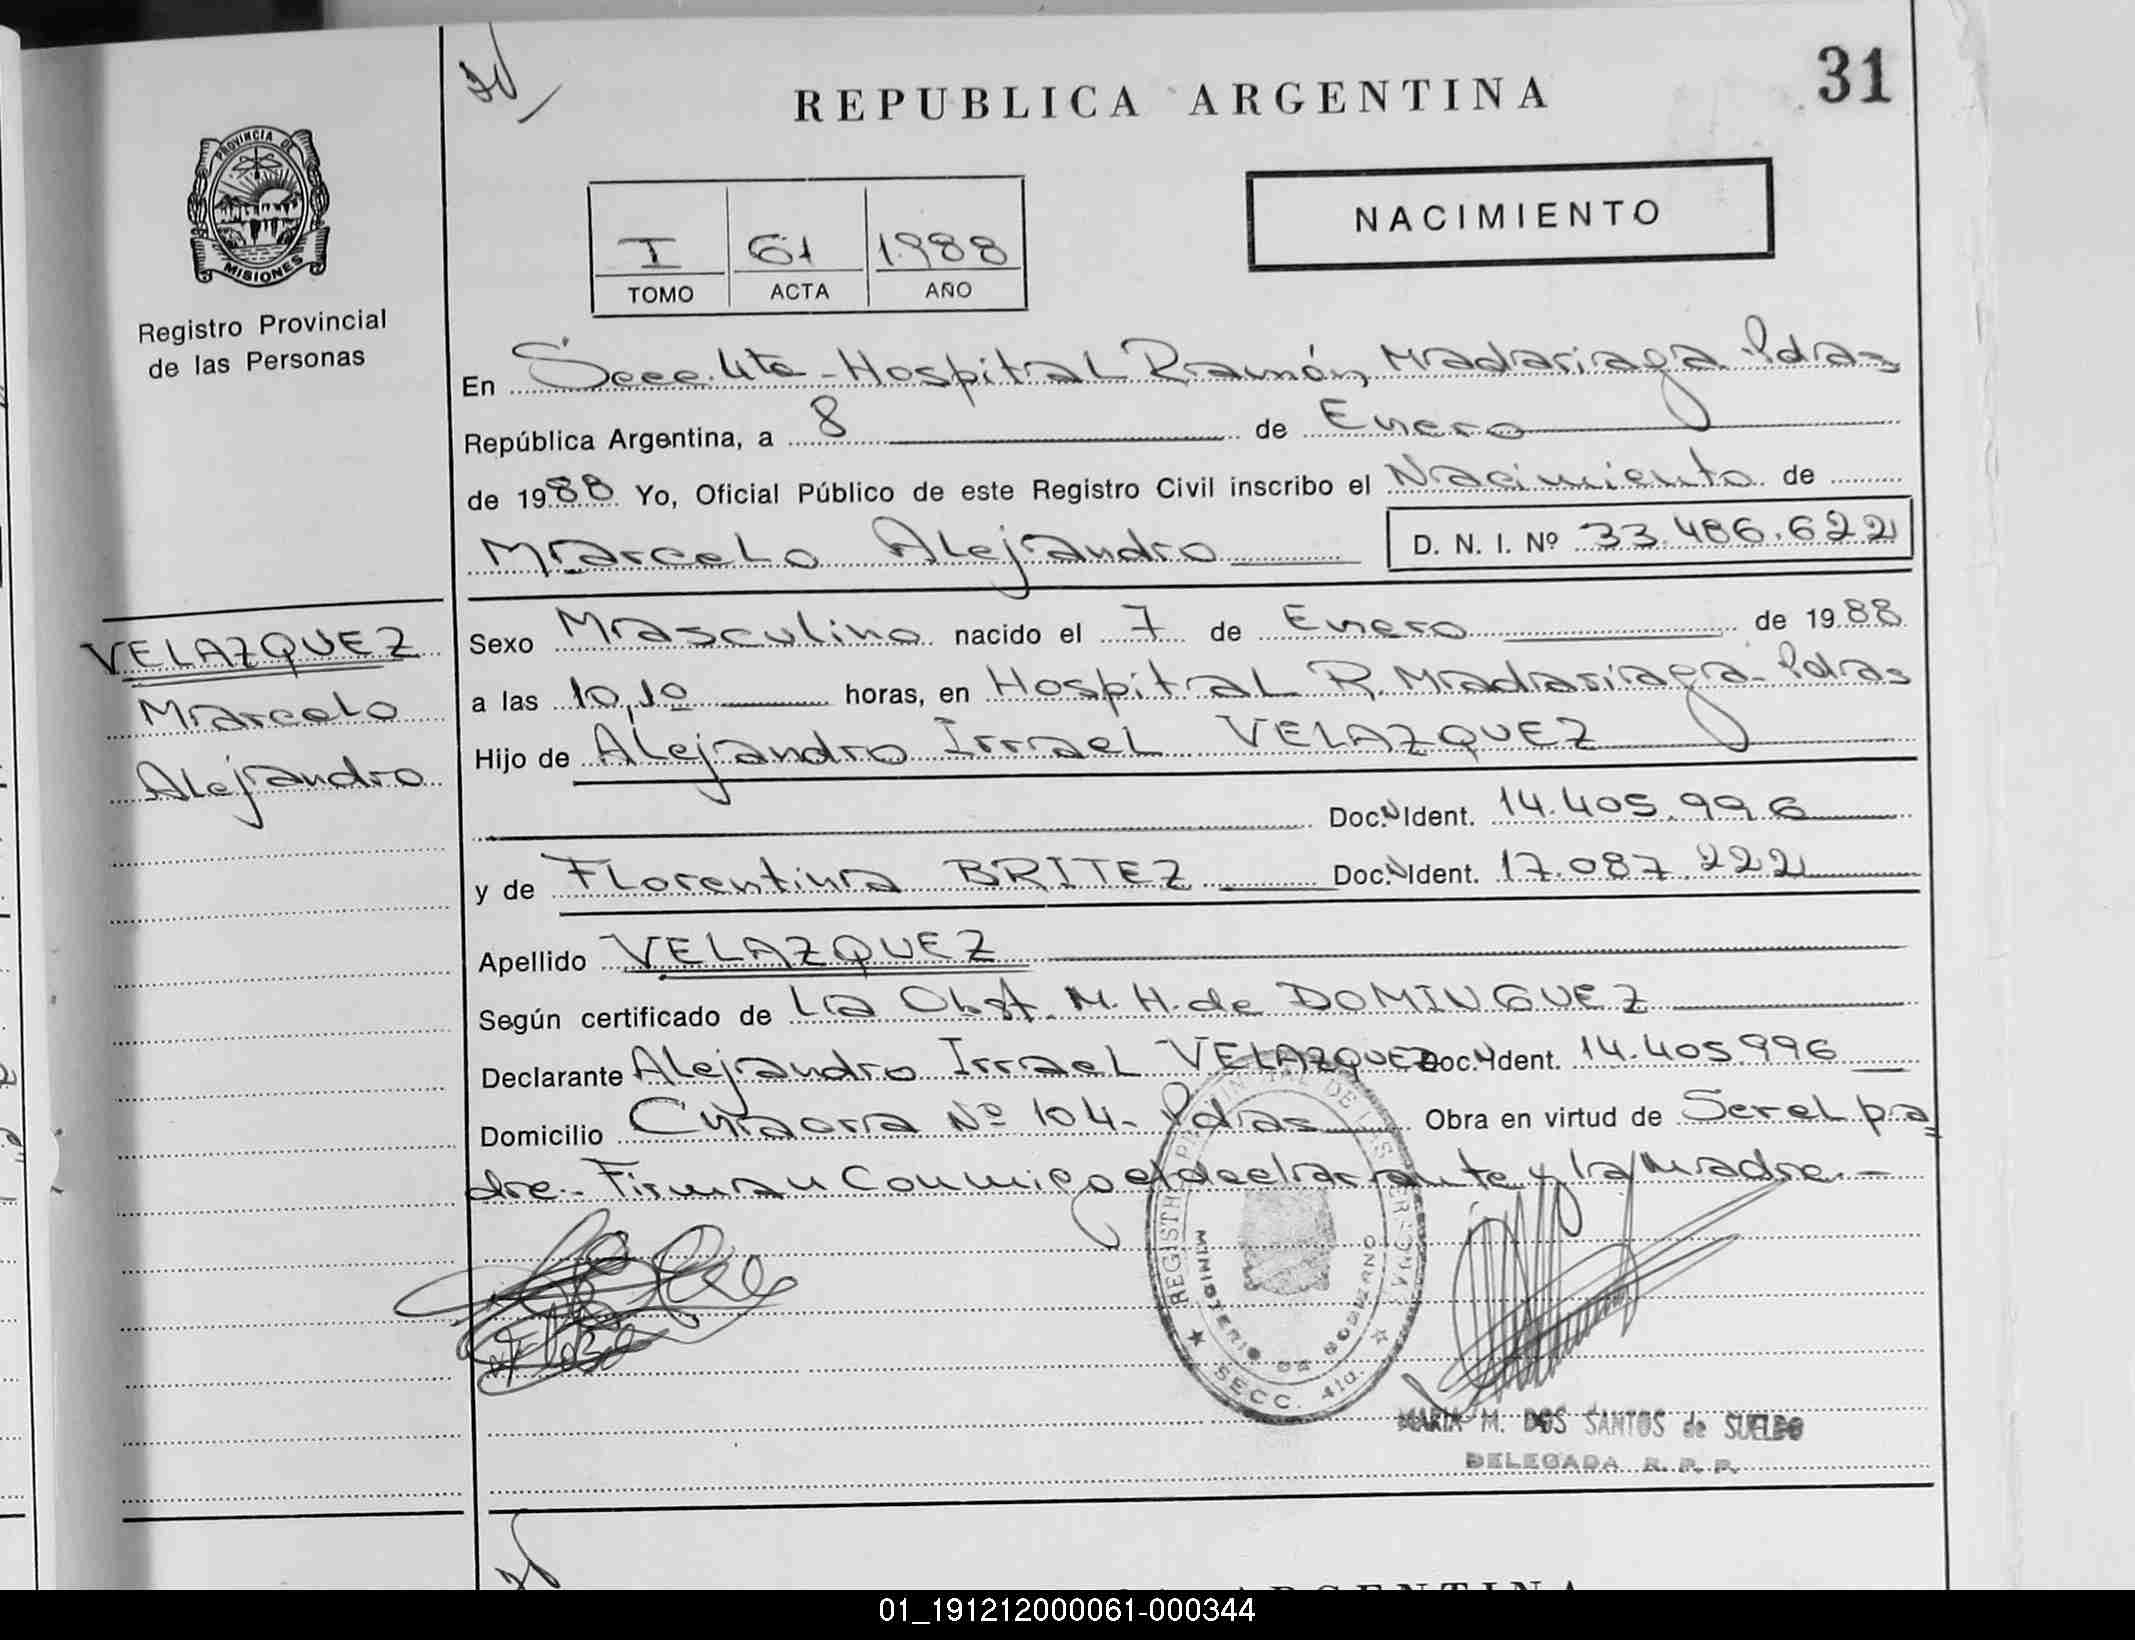 31
REPUBLICA ARGENTINA
NACIMIENTO
PROVINCIA DE
MISIONES
Registro Provincial
de las Personas
I 61 1988
TOMO ACTA AÑO
En Secc. 4ta - Hospital Ramón Madariaga Pdas
República Argentina, a 8 de Enero
de 1988 Yo, Oficial Público de este Registro Civil inscribo el Nacimiento de
Marcelo Alejandro D. N. I. Nº 33.486.622
VELAZQUEZ
Marcelo
Alejandro
Sexo Masculino nacido el 7 de Enero de 1988
a las 10,10 horas, en Hospital R. Madariaga - Pdas
Hijo de Alejandro Irrael VELAZQUEZ
Doc. Ident. 14.405.996
y de Florentina BRITEZ Doc. Ident. 17.087.222
Apellido VELAZQUEZ
Según certificado de La Obst. M. H. de DOMINGUEZ
Declarante Alejandro Irrael VELAZQUEZ Doc. Ident. 14.405996
Domicilio Nº 104 - Pdas Obra en virtud de Ser el pa
dre - Firman Conmigo el declarante y la Madre. -
REGISTRO PROVINCIAL DE LAS PERSONAS
MINISTERIO DE GOBIERNO
SECC. 4ta.
MARIA M. DOS SANTOS de SUELDO
DELEGADA R. P. P.
ARGENTINA
01_191212000061-000344